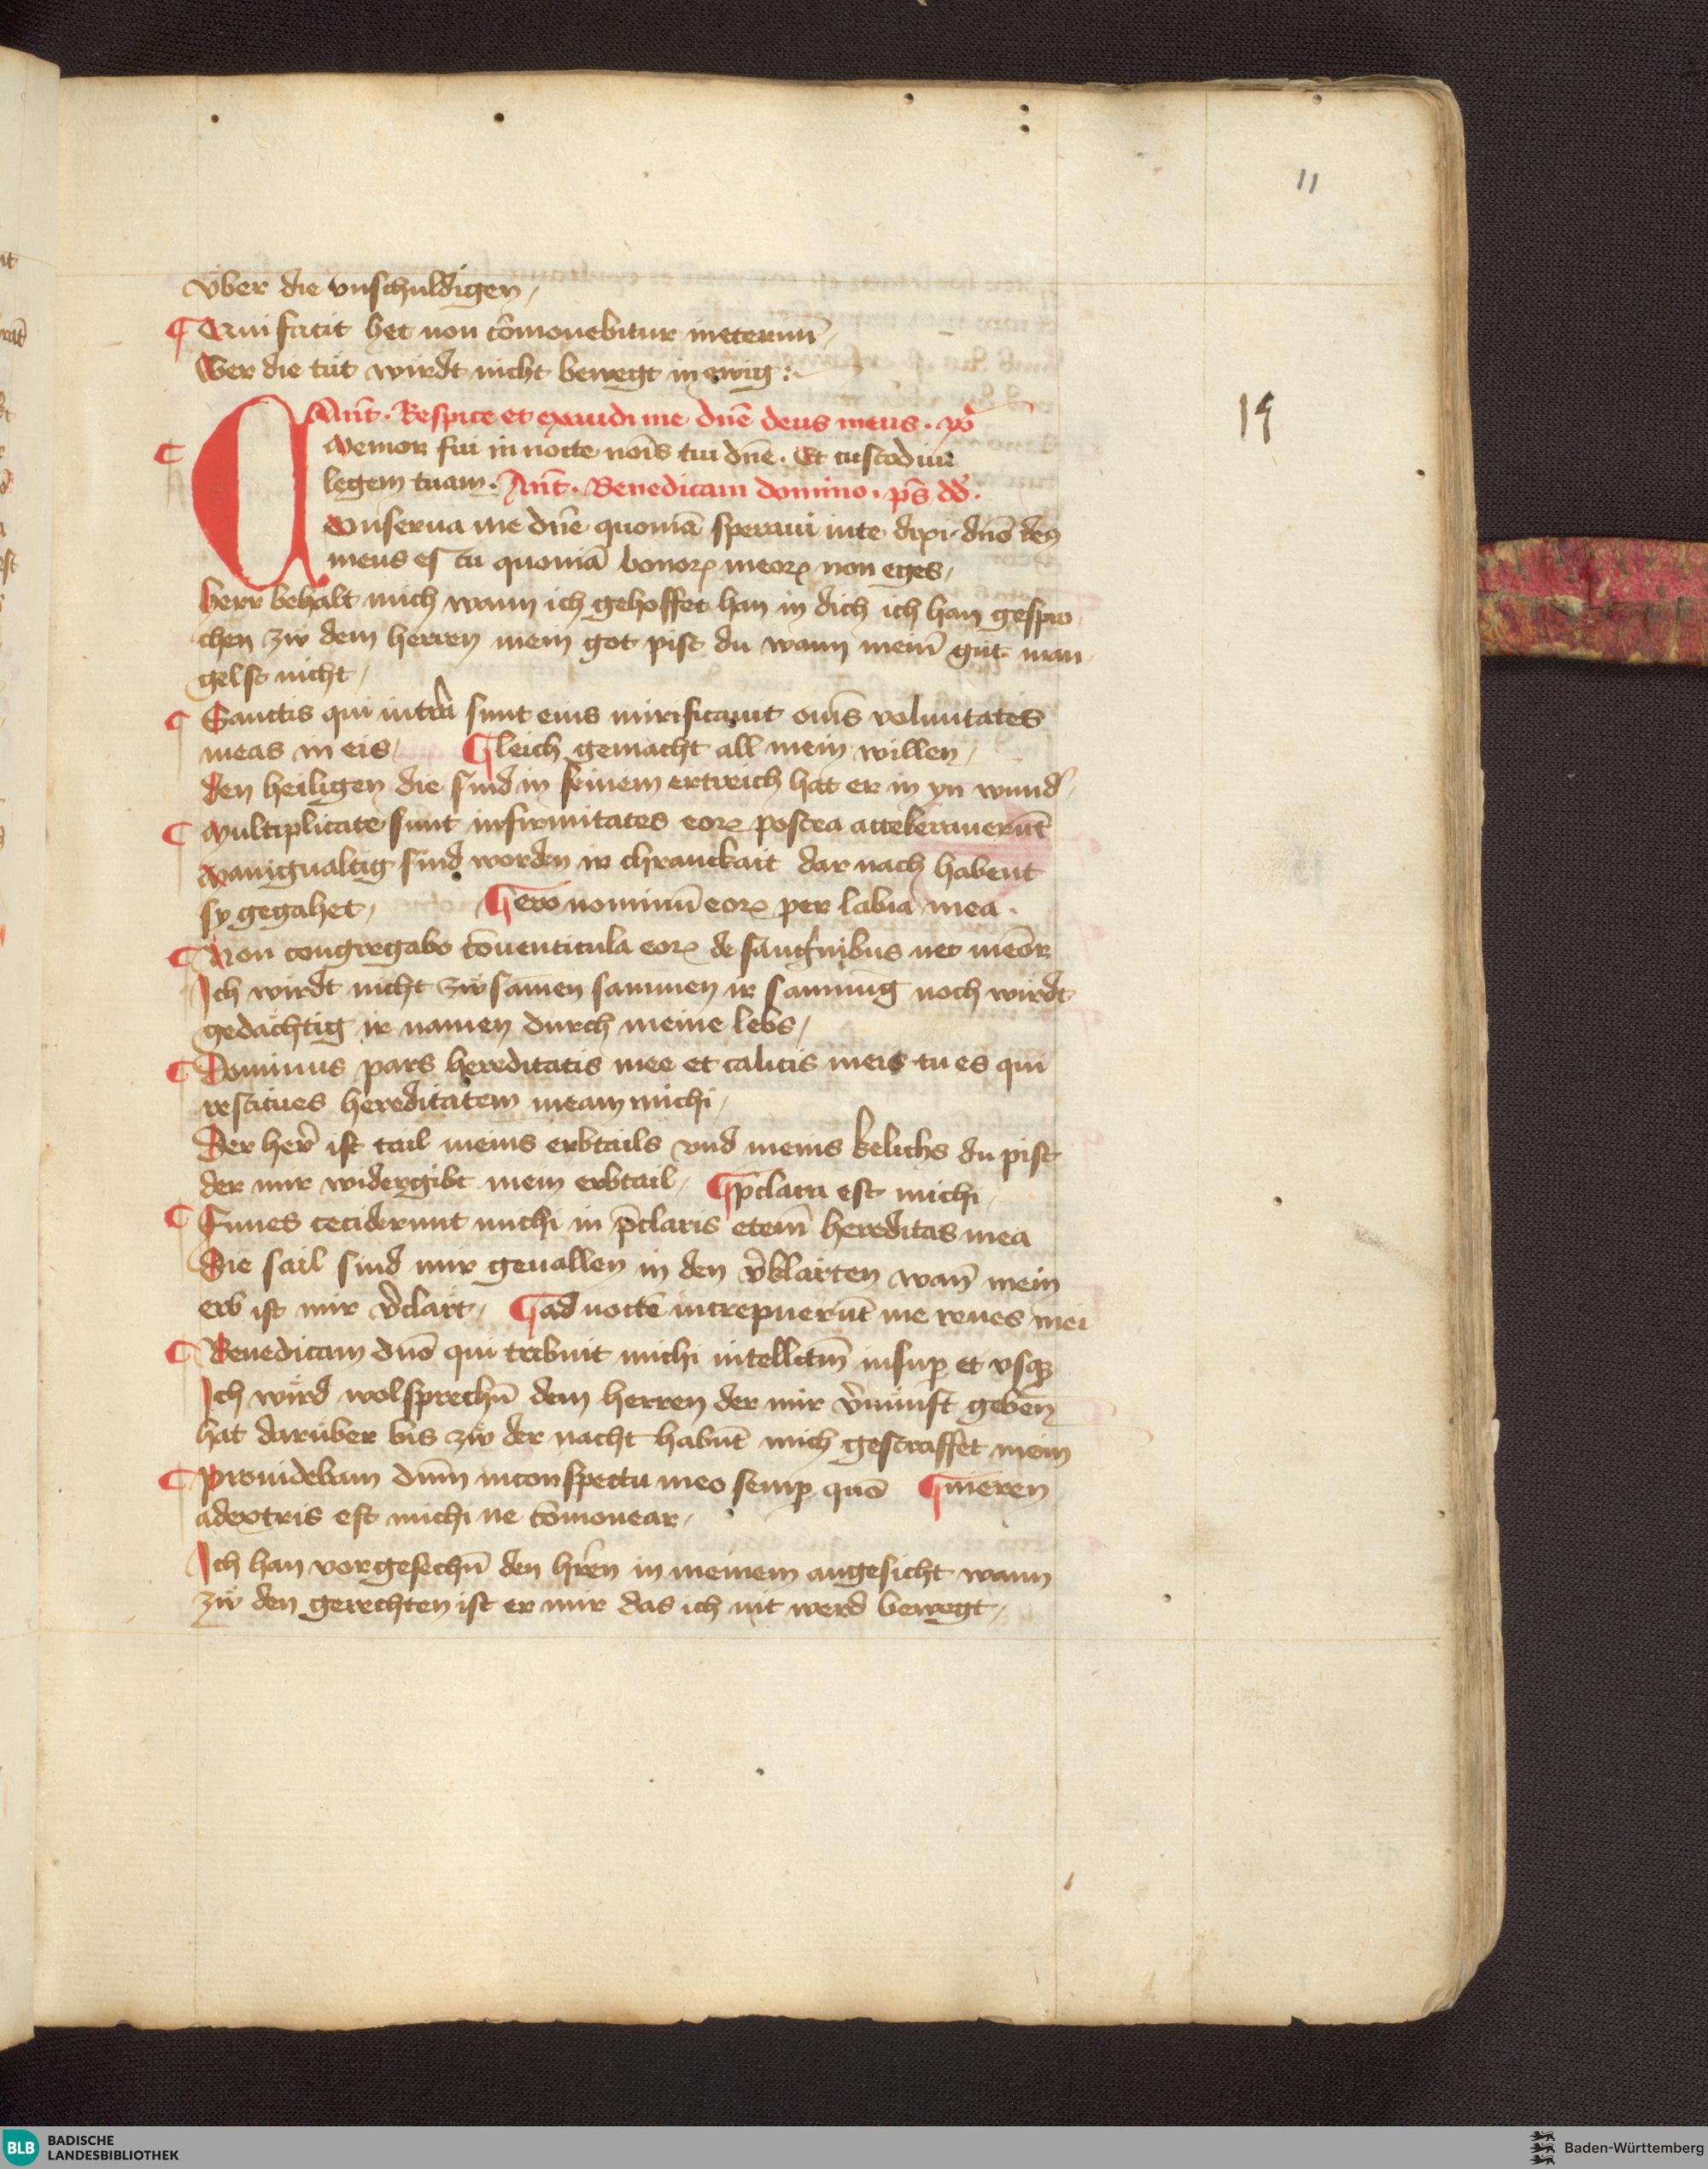 11
vber die vnschuldigen /
Qui facit hec non co̅mouebitur ineternu̅ /
Wer die tüt wirdt nicht bewegt in ewig :
Ant̅ . Respice et exaudi me dn̅e deus meus .
15
Memor fui in nocte no̅i̅s tui dn̅e . Et custodiui
legem tuam . Ant̅ . Benedicam domino . ps̅ dd̅ .
Conserua me dn̅e quonia̅ speraui inte dixi dn̅o deꝰ
meus es tu quonia̅ bonoꝝ meoꝝ non eges /
herr behalt mich wann ich gehoffet han in dich ich han gespro
chen zw̎ dem herren mein got pist du wann mein̅ güt man
gelst nicht /
Sanctis qui intr̅a sunt eius mirificauit om̅s voluntates
meas in eis / Gleich gemacht all mein willen /
den heiligen die sind in seinem ertreich hat er in yn wund᷑
Multiplicate sunt infirmitates eoꝝ postea accelerauerūt
Manigualtig sind worden ir chranckait dar nach habent
sy gegahet / ero nominu̅ eoꝝ per labia mea .
Non congregabo co̅uenticula eoꝝ de sanguinibus nec memor
Ich wirdt nicht zw̎samen sammen ir samu̅ng noch wirdt
gedächtig ir namen durch meine lebs /
Dominus pars hereditatis mee et calicis mei tu es qui
restitues hereditatem meam michi /
Der her̅ ist tail meins erbtails vnd meins kelichs du pist
der mir widergibt mein erbtail / p̅clara est michi /
Funes ceciderunt michi in p̅claris etem̅ hereditas mea
Die sail sind mir geuallen in den v̅klärten wan̅ mein
erb ist mir v̅clärt / ad nocte̅ increpuerūt me renes mei
Benedicam dn̅o qui tribuit michi intellctm̅ insuꝑ et vsqꝫ
Ich wu̎rd wolsprechn̅ dem herren der mir v̅nünft geben
hat darüber bis zw̎ der nacht habn̅t mich gestraffet mein
Prouidebam dnm̅ inconspectu meo semꝑ quo̅ nieren
adextris est michi ne co̅mouear /
Ich han vorgesechn̅ den hr̅en in meinem angesicht wann
zw̎ den gerechten ist er mir das ich nit werd bewegt /
BLB BADISCHE
LANDESBIBLIOTHEK
Baden-Württemberg